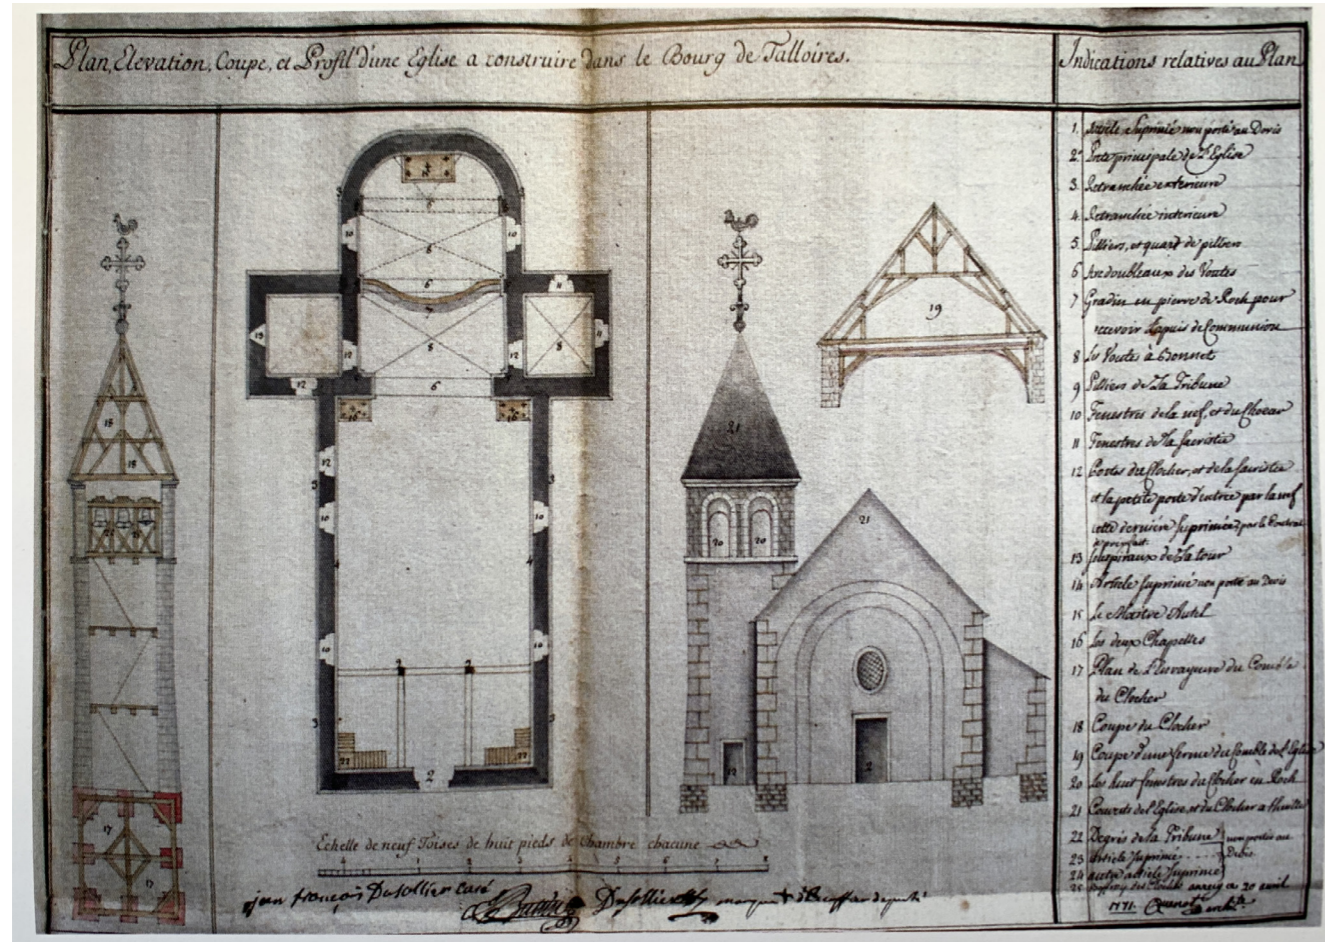 Plan, Elevation, Coupe, et Profil d'une Eglise a construire dans le Bourg de Talloires.
Indications relatives au Plan
1. Article Suprimé non porté au Devis
2. Porte principale de L'Eglise
3. Retranchée exterieure
4. Retranchée interieure
5. Pilliers, et quart de pilliers
6 Arcdoubleaux des Voutes
7 Gradin en pierre de Roch pour
recevoir L'apuis de Communion
8 Les Voutes à Bonnet
9 Pilliers de La Tribune
10 Fenestres de la nef, et du Choeur
11 Fenestres de La Sacristie
12 Portes du Clocher, et de la Sacristie
et la petite porte d'entrée par la nef
cette derniere Suprimée, par le Contrat
13 Soupiraux de La tour
14 Article Suprimé non porté au Devis
15 Le Maitre Autel
16 Les deux Chapelles
17 Plan de L'Enrayeure du Comble
du Clocher
18 Coupe du Clocher
19 Coupe d'une ferme du Comble de L'Eglise
20 Les huit fenestres du Clocher en Roch
21 Couverts de l'Eglise et du Clocher a
22 Degrés de la Tribune non portés au
23 Article Suprimé Devis
24 autre article Suprimé
25 annecy ce 20 avril
1771.
Echelle de neuf Toises de huit pieds de Chambre chacune
jean françois Dusollier curé
Dusollier
marque + d'